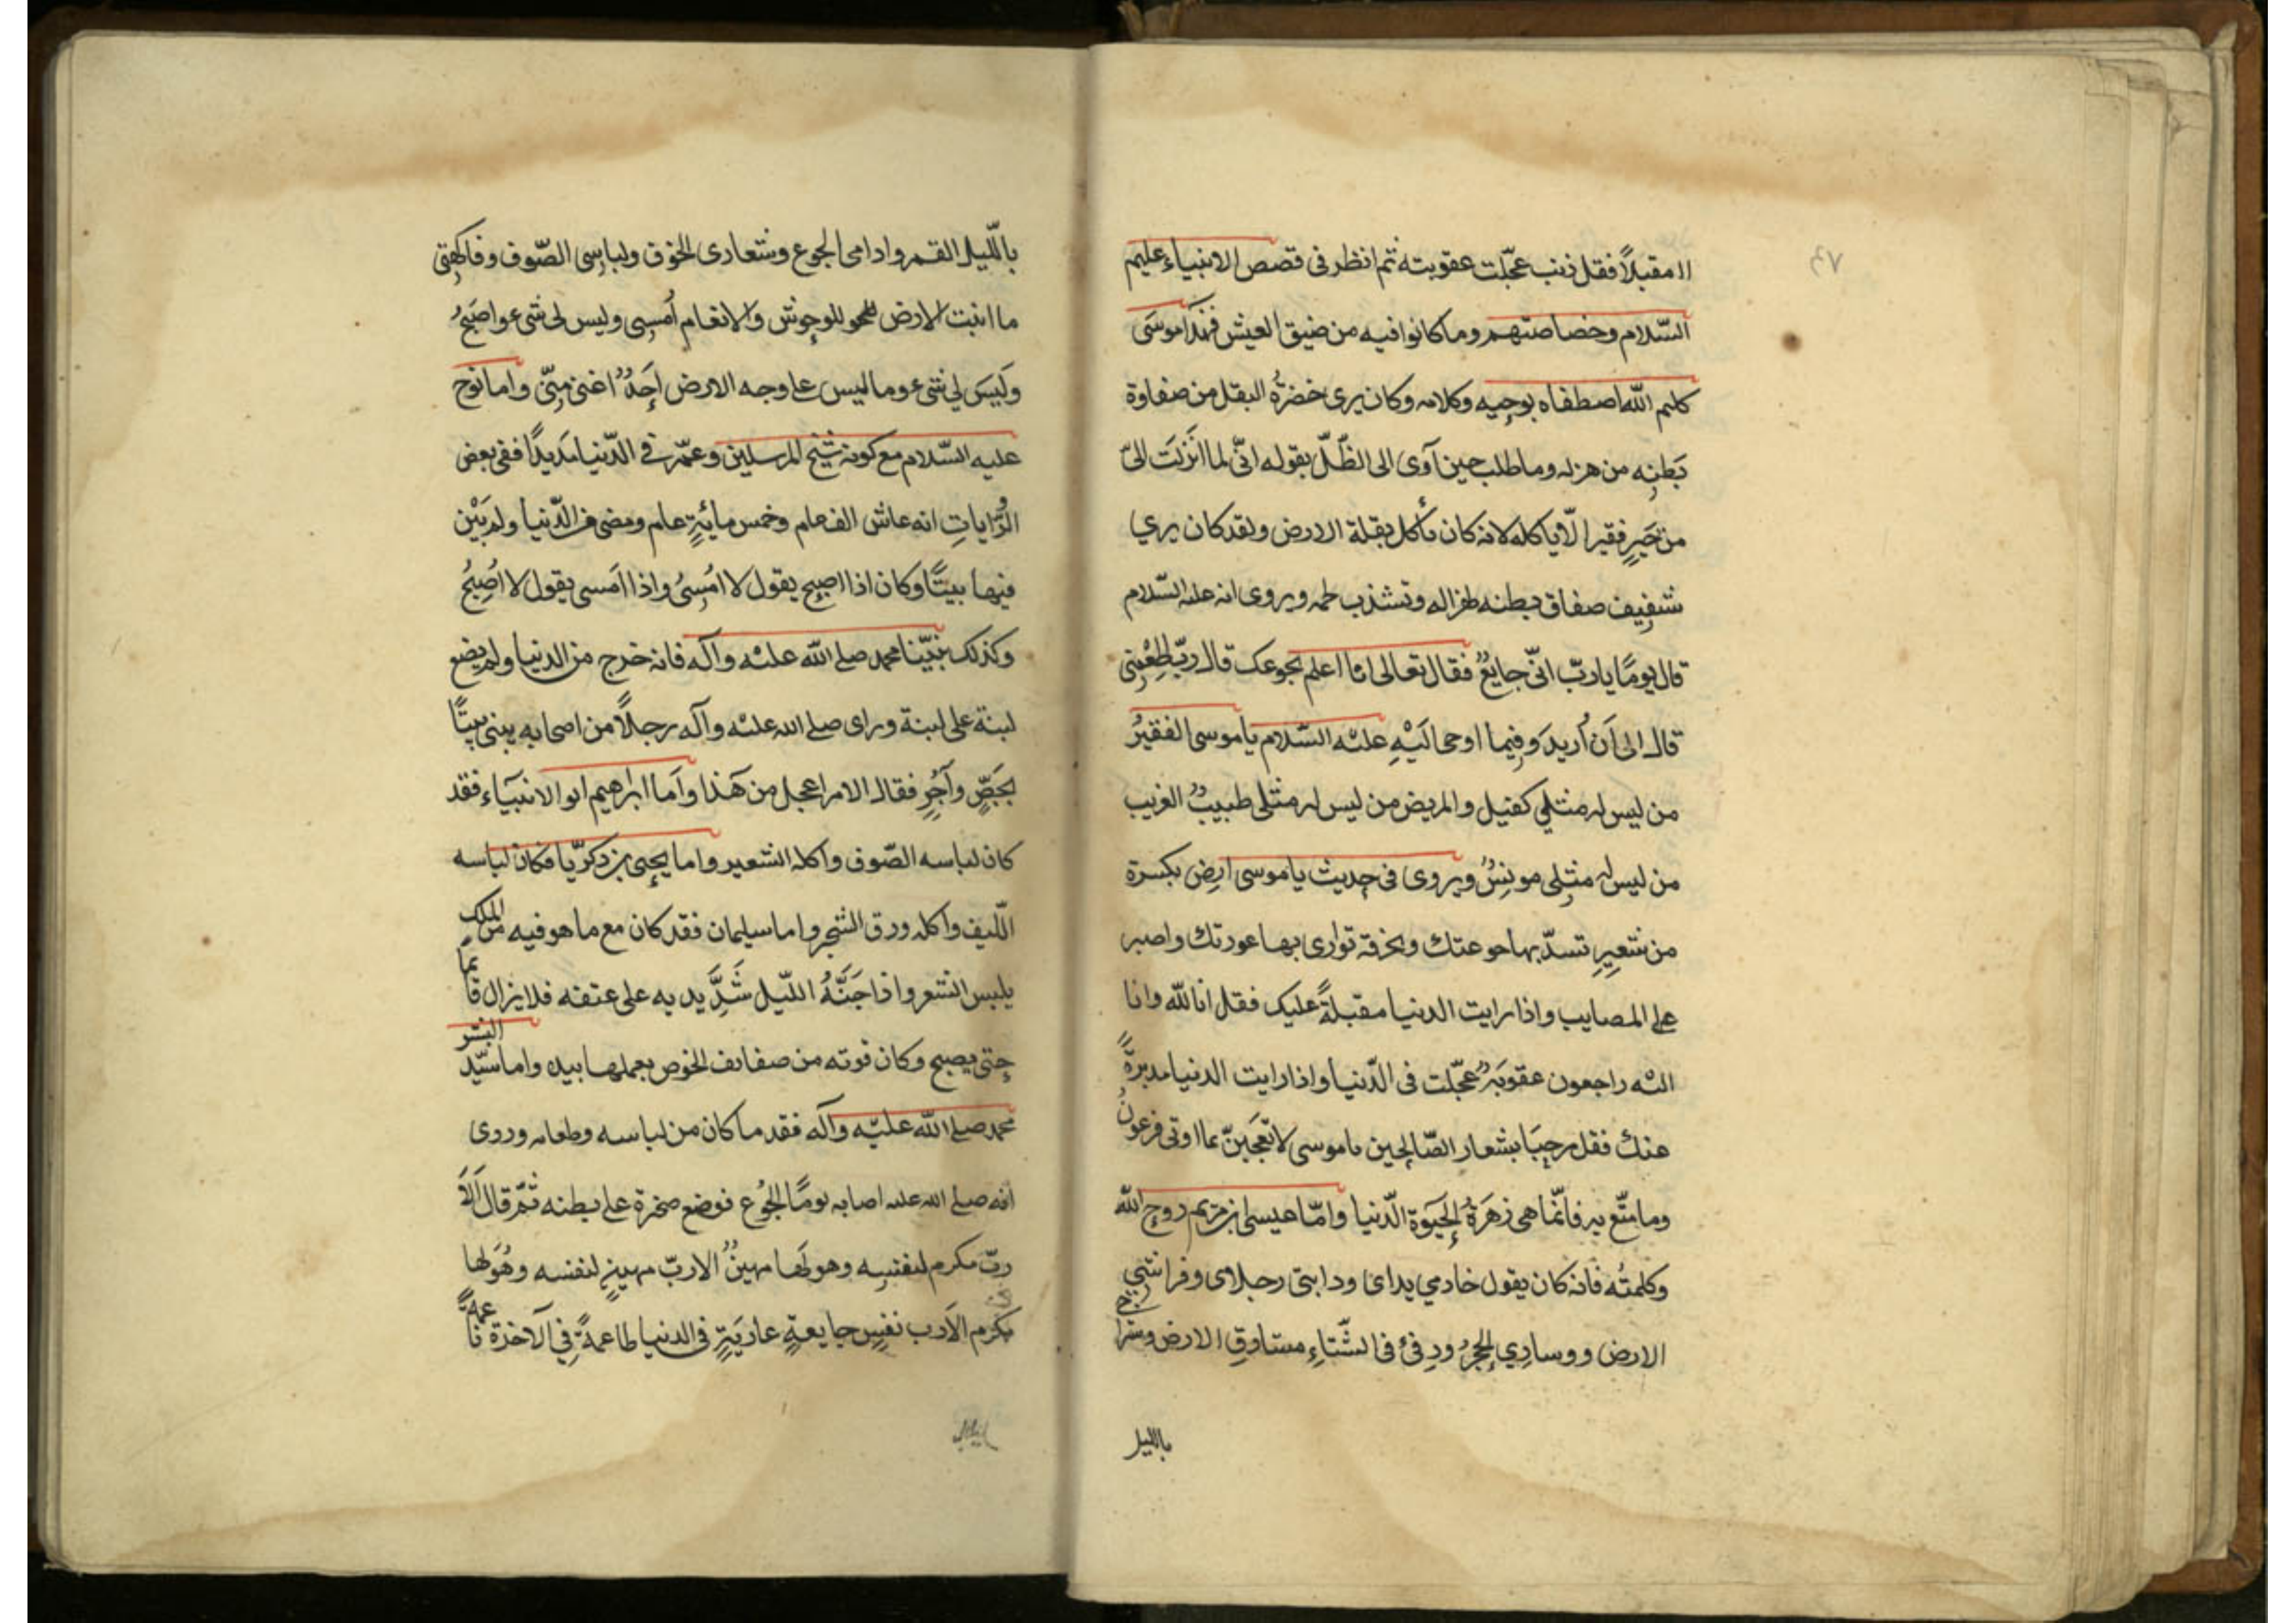 ٤٧
الا مقبلاً فقل ذنب عجّلت عقوبته ثم انظر فى قصص الانبياء عليهم
السّلام وخصاصتهم وما كانوا فيه من ضيق العيش فهذا موسَى
كليم اللّه اصطفاه بوحيه وكلامه وكان يرى خضرةُ البقل من صفاوة
بَطنِه من هزله وما طلب حين آوى الى الظّلّ بقوله انّى لما انزلت الىّ
من خَيرٍ فقير الّا ياكله لانه كان يأكل بقلة الارض ولقد كان يري
شفيف صفاق بطنه لهزاله وتشذب لحمه ويروى انه عليه السّلام
قال يومًا يا ربّ انّى جايعٌ فقال تعالى انا اعلم بجوعك قال ربّ اطعِمْنِى
قال الى اَن اُريد وفيما اوحى اليْهِ عليْه السّلام يا موسى الفقيرُ
من ليس له مثلي كفيل والمريض من ليس له مثلى طبيبٌ الغريب
من ليس له مثلى مونِسٌ ويروى فى حديث يا موسى ارض بكسرة
من شعيرٍ تسدّ بها جوعتك وبخرقة توارى بها عورتك واصبر
على المصايب واذا رايت الدنيا مقبلةً عليك فقل انا للّه وانا
اليْه راجعون عقوبَةٌ عجّلت فى الدّنيا واذا رايت الدنيا مدبرةً
عنك فقل مرحبَا بشعار الصّالحين يا موسى لا تعجَبَنّ بما اوتى فرعونُ
وما متّع به فانّما هى زهَرَةُ الحيَوة الدّنيا وامّا عيسى ابن مريم روح اللّه
وكلمتُه فانه كان يقول خادمي يداى ودابتى رجلاى وفراشي
الارض ووسادِي الحجرُ ودِفئ فى الشّتاءِ مشارق الارض وسراجى
بالليل
باللّيل القمر وادامى الجوع وشعارى الخوف ولباسِى الصّوف وفاكهتِى
ما انبت الارض للوحوش والانعام اُمسِى وليس لى شىء واصبحُ
ولَيسَ لي شىء وما ليس على وجه الارض اَحَدٌ اغنى مِنّى واما نوح
عليه السّلام مع كونه شيخ المرسلين وعمّر فى الدّنيا مَدِيدًا ففى بعض
الرّوايات انه عاش الف عام وخمس مايَةِ عام ومضى من الدّنيا ولم يَبْن
فيها بيتًا وكان اذا اصبح يقول لا امْسِىُ واذا امسى يقول لا اُصبِحُ
وكذلك نبيّنا محمد صلى اللّه عليْه وآله فانه خرج من الدنيا ولم يضع
لبنة على لبنة وراى صلى اللّه عليْه وآله رجلاً من اصحابه يبنى بيتًا
بجَصٍّ وآجُرٍ فقال الامر اعجل من هَذا واَما ابراهيم ابو الانبيَاء فقد
كان لباسه الصّوف واكله الشعير واما يحيى بن زكريّا فكان لباسه
اللّيف واكله ورق الشجر واما سليمان فقد كان مع ما هو فيه من الملك
يلبس الشعر واذا جَنَّهُ اللّيل شَدَّ يديه على عنقه فلا يزال قائمًا
حتى يصبح وكان قوته من صفايف الخوص يعملها بيده واما سَيّد البشر
محمد صلى اللّه عليْه وآله فقد ما كان من لباسه وطعامه وروى
انه صلى اللّه عليه اصابه يومًا الجُوْع فوضع صخرة على بطنه ثمّ قال اَلاَ
ربّ مكرم لنفسه وهو لَها مهينٌ الا ربّ مهينٍ لنفسه وهُوَ لها
مكرم الا رب نفسٍ جايعةٍ عاريَةٍ فى الدنيا طاعمةً فِي الآخرة ناعمةً